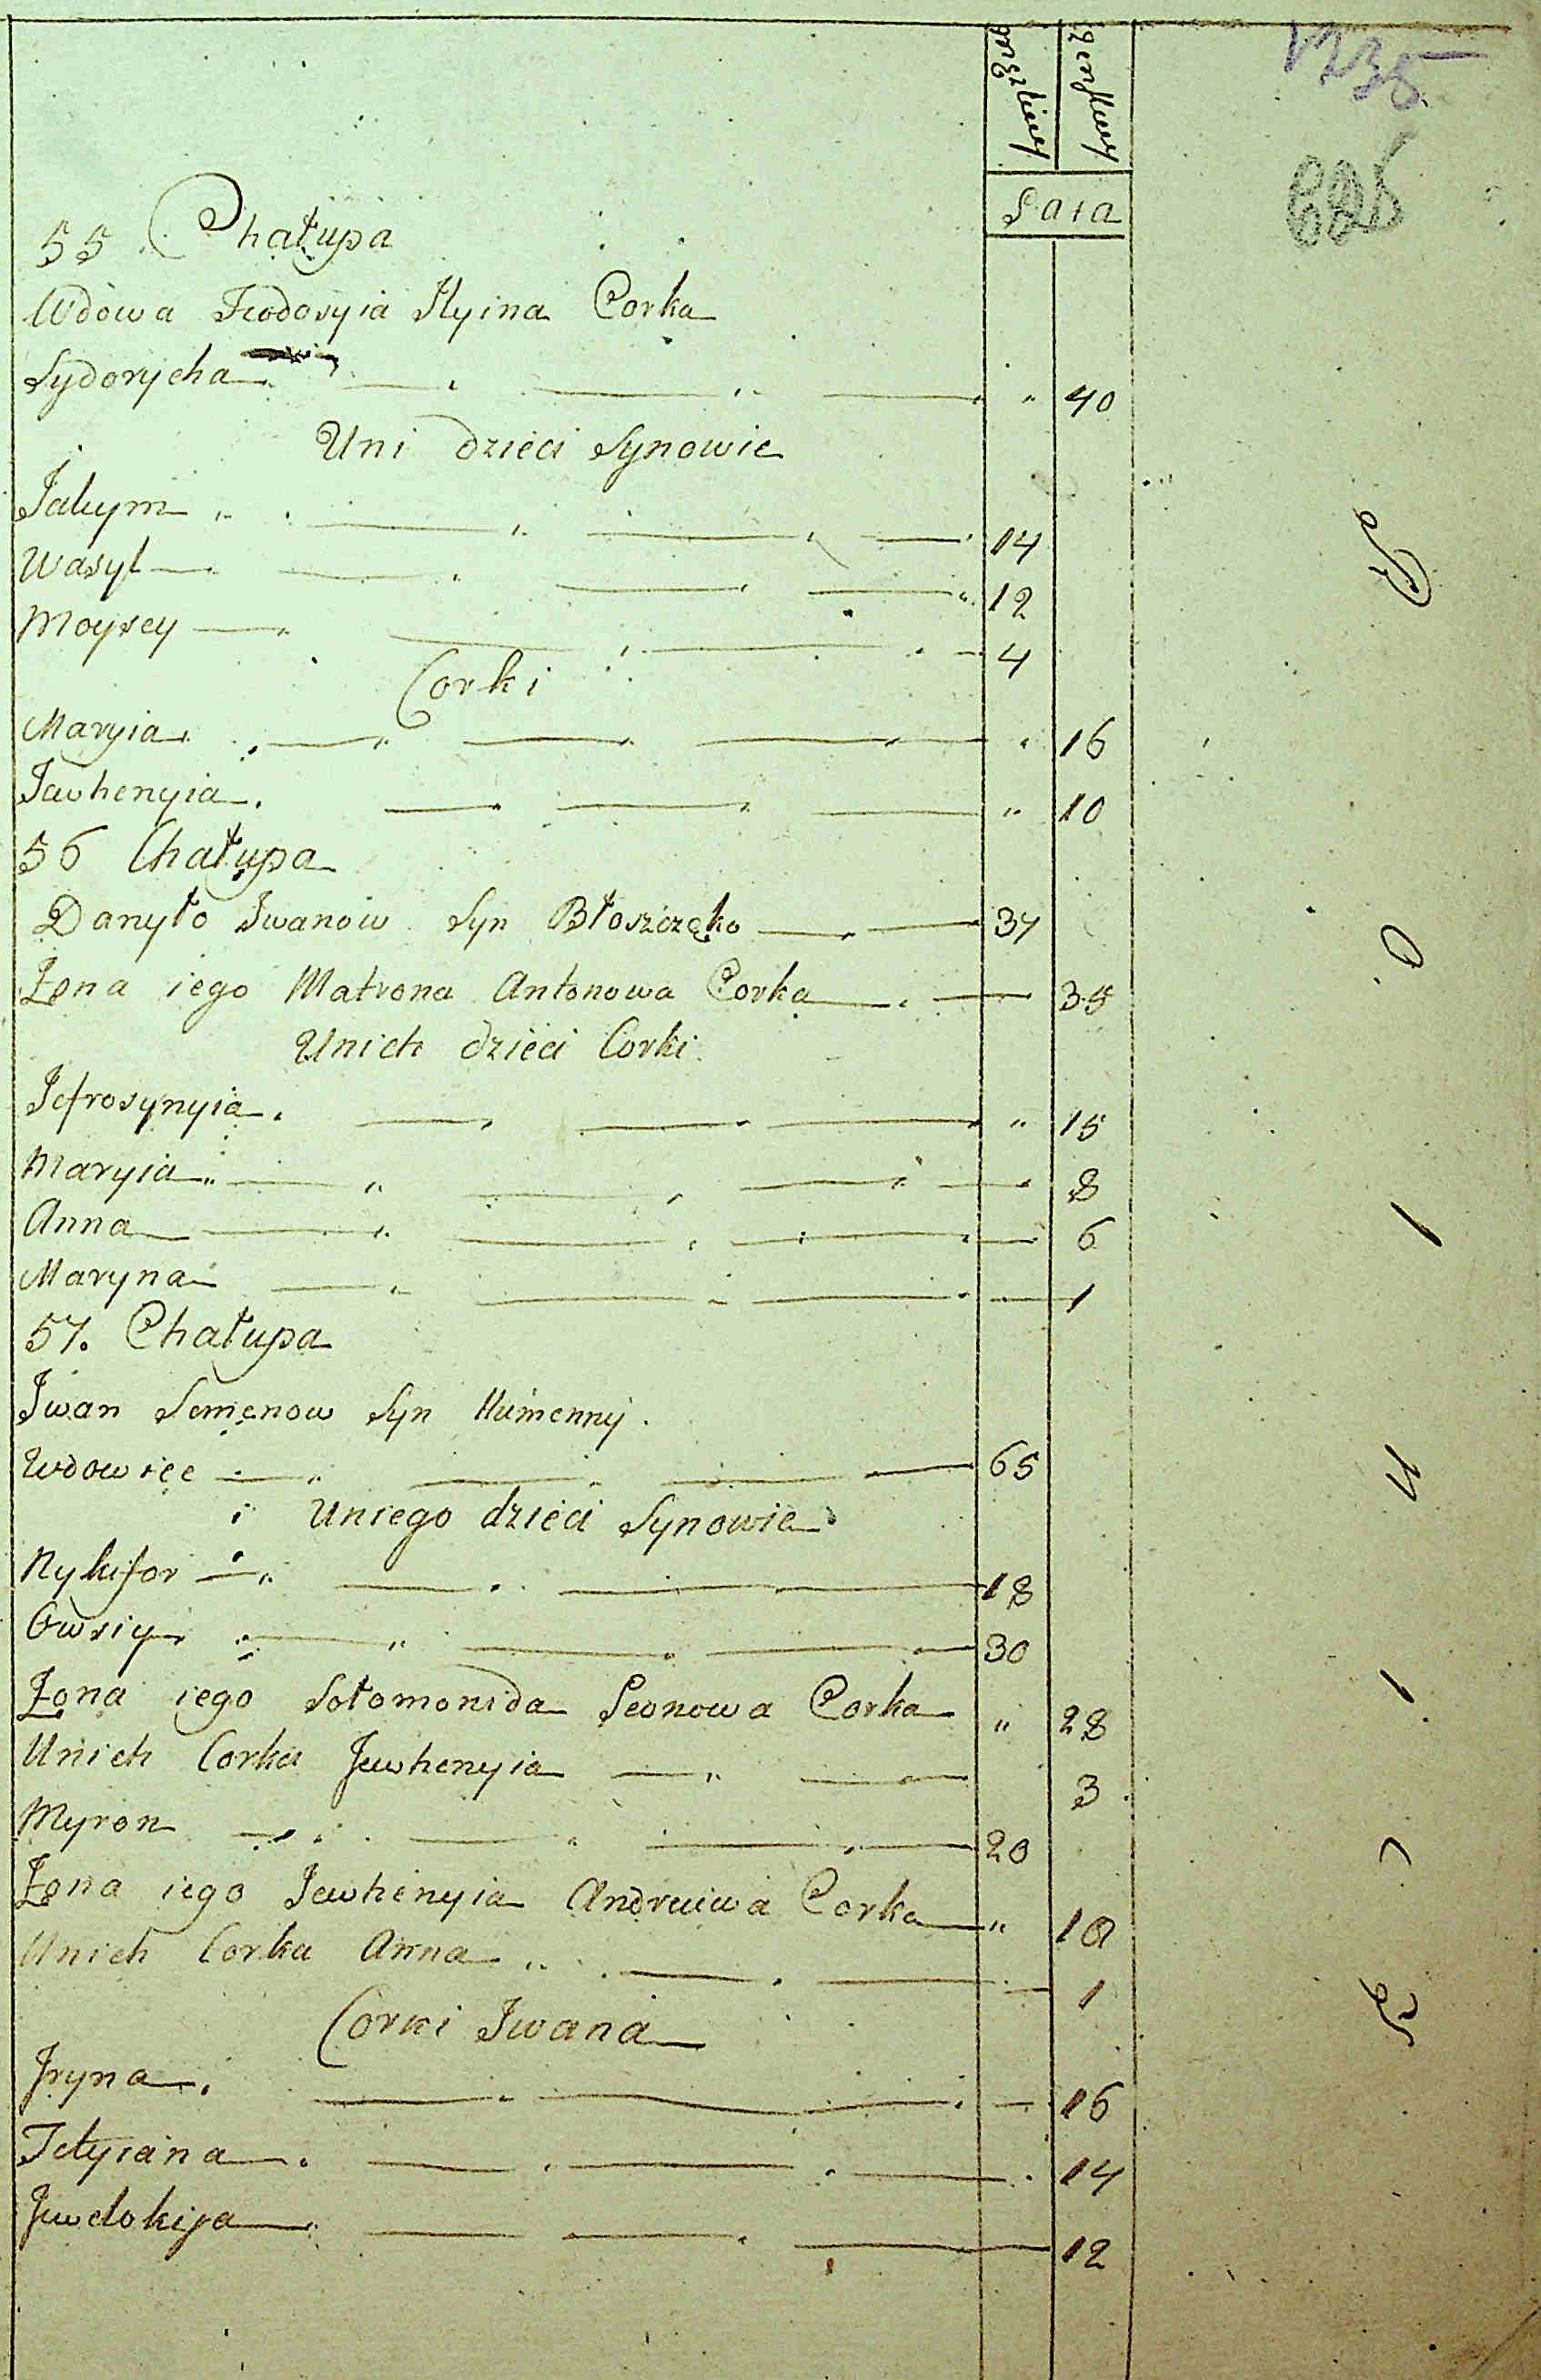 męzkiey żenskiey
Lata
55 Chałupa
Wdowa Feodosyia Ilyina Corka
Sydorycha " 40
U ni dzieci Synowie
Jakym 14
Wasyl 12
Moysey 4
Corki
Maryia " 16
Jawhenyia " 10
56 Chałupa
Danyło Iwanow Syn Błoszczęko 37
Żona iego Matrona Antonowa Corka 35
Unich dzieci Corki
Jefrosynyia " 15
Maryia 8
Anna 6
Maryna 1
57. Chałupa
Iwan Semenow Syn Humenny.
Wdowiec 65
Uniego dzieci Synowie
Nykifor 18
Owsiy 30
Żona iego Sołomonida Leonowa Corka " 28
Unich Corka Jewhenyia 3
Myron 20
Żona iego Jewhenyia Andreiwa Corka "
Unich Corka Anna 1
Corki Iwana
Iryna 16
Tetyiana 14
Jewdokija 12